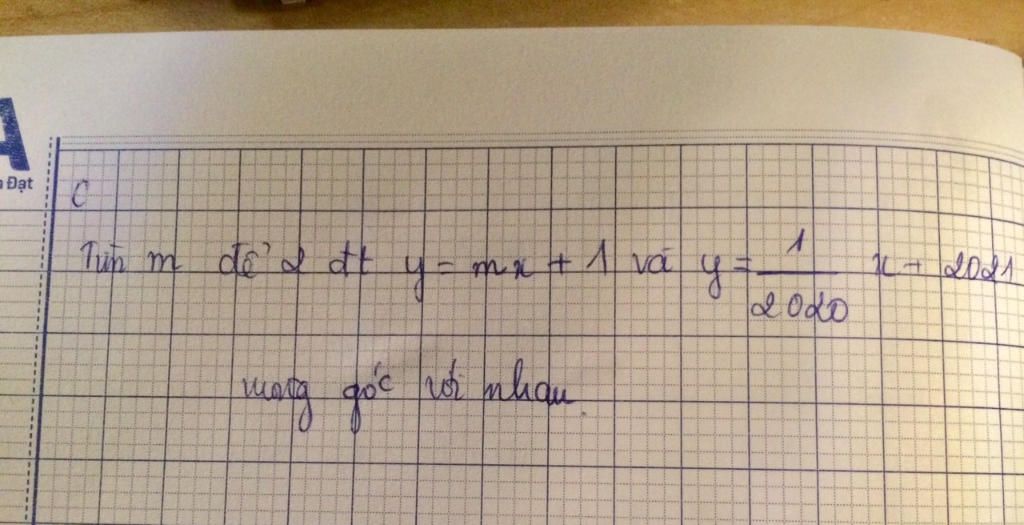 A
Đạt
C
Tìm m để 2 đt y = mx + 1 và y = 1/2020 x + 2021
vuong góc với nhau.